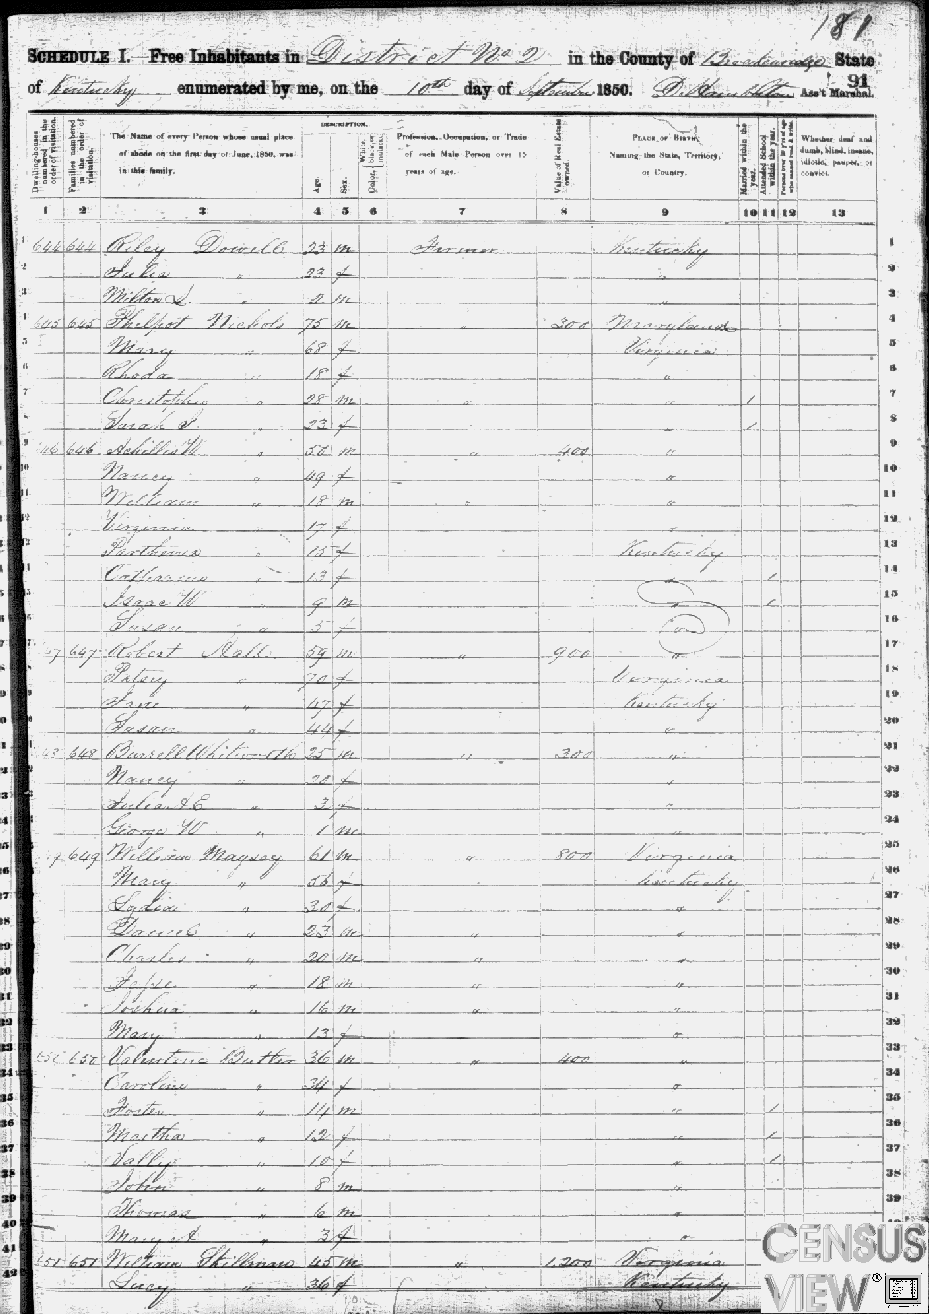 181
SCHEDULE I. Free Inhabitants in District No 2 in the County of Breckenridge State
of Kentucky enumerated by me, on the 10th day of September 1850. Ass't Marshal. 91
Dwelling-houses numbered in the order of visitation.
Families numbered in the order of visitation.
The Name of every Person whose usual place of abode on the first day of June, 1850, was in this family.
DESCRIPTION.
Age.
Sex.
Color, White, black, or mulatto.
Profession, Occupation, or Trade of each Male Person over 15 years of age.
Value of Real Estate owned.
PLACE OF BIRTH, Naming the State, Territory, or Country.
Married within the year.
Attended School within the year.
Persons over 20 y'rs of age who cannot read & write.
Whether deaf and dumb, blind, insane, idiotic, pauper, or convict.
1 2 3 4 5 6 7 8 9 10 11 12 13
1 644 644 Riley Dowell 23 m Farmer Kentucky 1
2 Julia " 23 f " 2
3 Milton " 2 m " 3
4 645 645 Philpot Nichols 75 m " 300 Maryland 4
5 Mary " 68 f Virginia 5
6 Rhoda " 18 f " 6
7 Christopher " 28 m " " 1 7
8 Sarah " 23 f 1 8
9 46 646 Achilles W " 50 m " 400 " 9
10 Nancy " 49 f " 10
11 William " 18 m " " 11
12 Virginia " 17 f " 12
13 Parthenia " 15 f Kentucky 13
14 Catharine " 13 f " 1 14
15 Isaac W " 9 m " 1 15
16 Susan " 5 f " 16
17 47 647 Robert Hall 59 m " 900 " 17
18 Patsey " 70 f Virginia 18
19 Jane " 47 f Kentucky 19
20 Susan " 44 f " 20
21 48 648 Burrell Whitworth 25 m " 300 " 21
22 Nancy " 20 f " 22
23 Julia A E " 3 f " 23
24 George W " 1 m " 24
25 649 William Maysey 61 m " 800 Virginia 25
26 Mary " 56 f Kentucky 26
27 Lydia " 30 f " 27
28 Daniel " 23 m " " 28
29 Charles " 20 m " " 29
30 Jesse " 18 m " " 30
31 Joshua " 16 m " " 31
32 Mary " 13 f " 32
33 650 650 Valentine Butler 36 m " 400 " 33
34 Caroline " 34 f " 34
35 Foster " 14 m " 1 35
36 Martha " 12 f " 1 36
37 Sally " 10 f " 1 37
38 John " 8 m " 38
39 Thomas " 6 m " 39
40 Mary A " 3 f " 40
41 651 651 William Skillman 45 m " 1,200 Virginia
42 Lucy " 36 f Kentucky
CENSUS
VIEW®